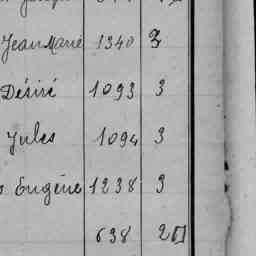 Jean Marie 1340 3
Désiré 1093 3
Jules 1094 3
Eugène 1238 3
638